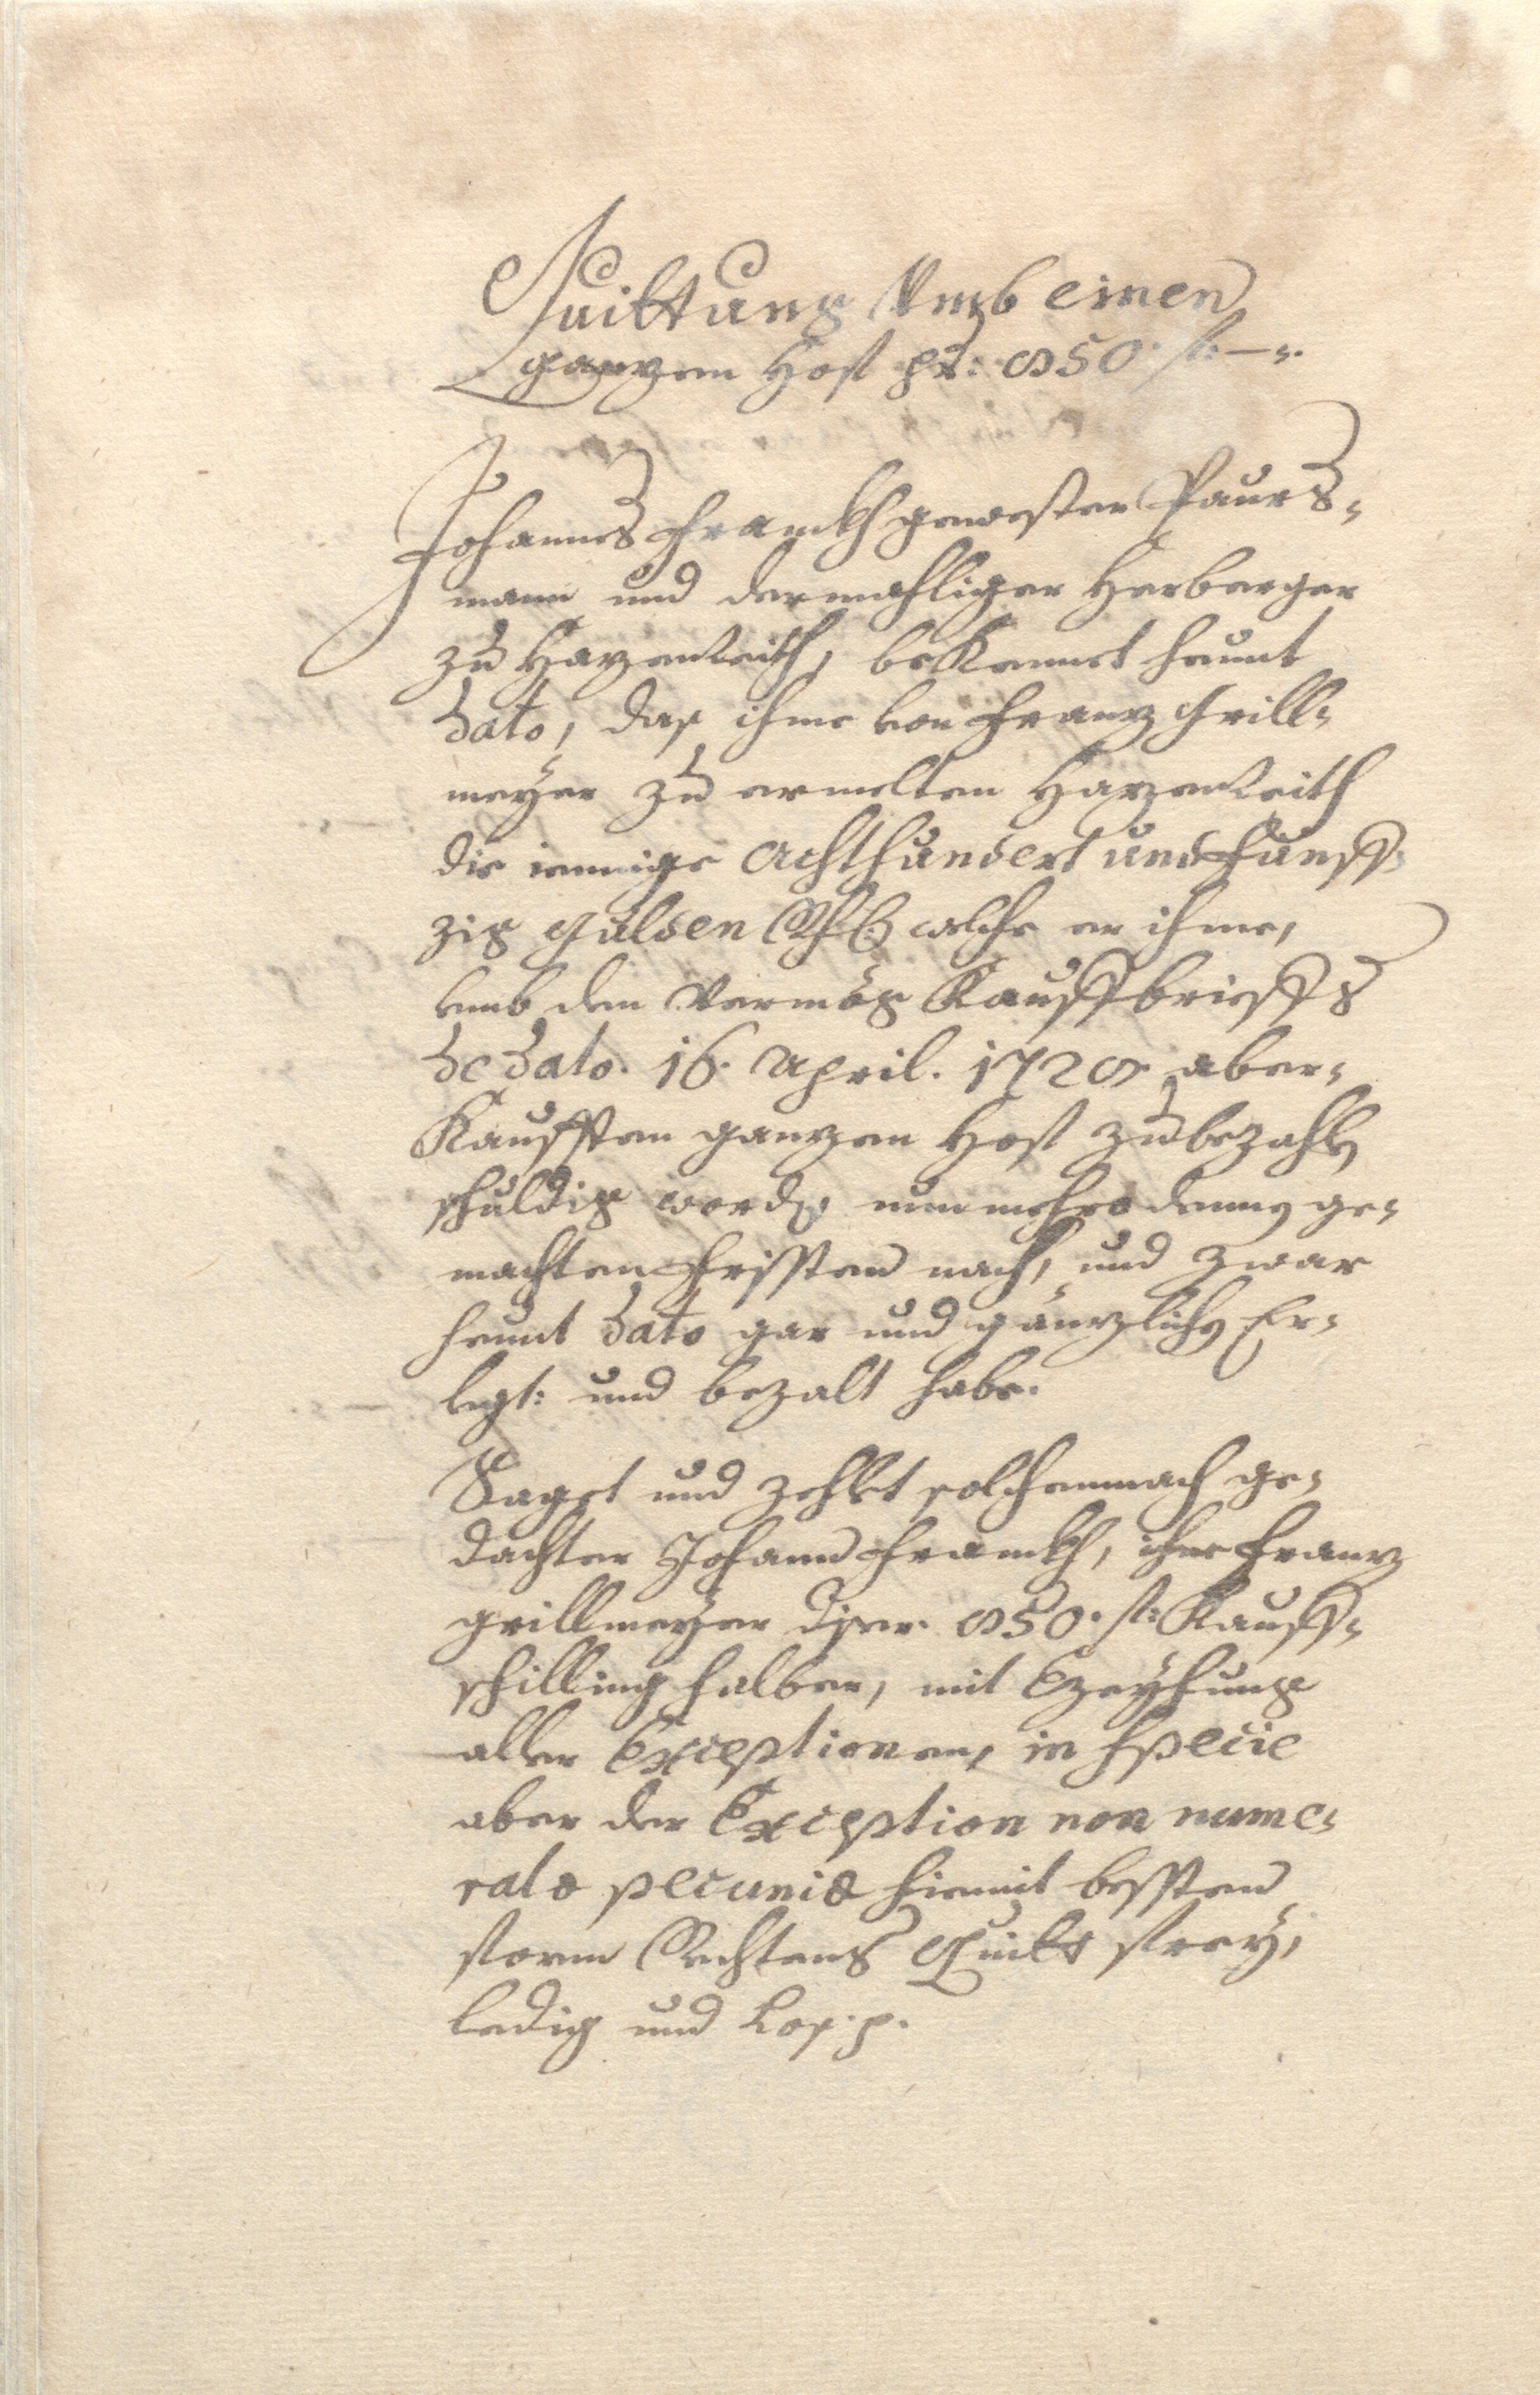 Quittung Umb einen
ganzen Hoff pr: 850. fl: —.
Johannes Franckh gewester Paurs-
mann und dermahliger Herberger
zu Hazenreith, bekennet heunt
dato, das ihme von Franz Grill-
meÿer zu ermelten Hazenreith
die iennige Achthundert und Funff-
zig Gulden welche er ihme,
umb den Vermög Kauffbrieffs
de dato. 16. April. 1728 aber-
Kaufften ganzen Hoff zu bezahlen
schuldig worden, nunmehro denen ge-
machten Frissten nach, und zwar
heunt dato gar und gänzlichen Er-
legt: und bezalt habe.
Saget und zehlet solchemnach ge-
dachter Johann Franckh, ihne Franz
Grillmeÿer diser 850. fl: Kauff-
schilling halber, mit Verzeÿhung
aller Exceptionen, in Specie
aber der Exception non nume-
ratæ pecuniæ hiemit bessten
form Rechtens Quitt freÿ,
ledig und Los. p.